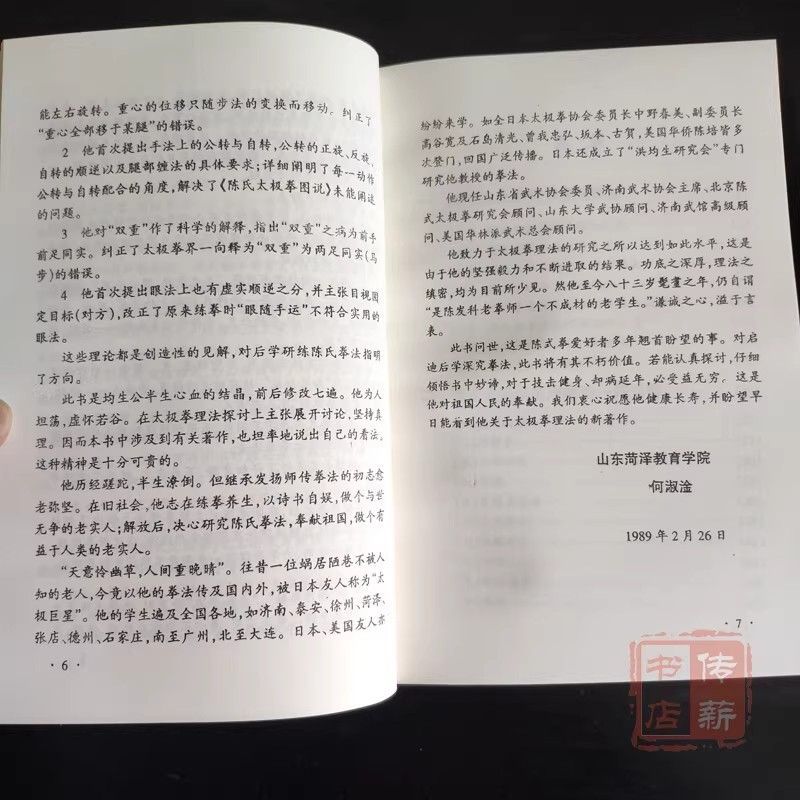 能左右旋转。重心的位移只随步法的变换而移动。纠正了
“重心全部移于某腿”的错误。
2 他首次提出手法上的公转与自转,公转的正旋、反旋,
自转的顺逆以及腿部缠法的具体要求;详细阐明了每一动作
公转与自转配合的角度,解决了《陈氏太极拳图说》未能阐述
的问题。
3 他对“双重”作了科学的解释,指出“双重”之病为前手
前足同实。纠正了太极拳界一向释为“双重”为两足同实(马
步)的错误。
4 他首次提出眼法上也有虚实顺逆之分,并主张目视固
定目标(对方),改正了原来练拳时“眼随手运”不符合实用的
眼法。
这些理论都是创造性的见解,对后学研练陈氏拳法指明
了方向。
此书是均生公半生心血的结晶,前后修改七遍。他为人
坦荡,虚怀若谷。在太极拳理法探讨上主张展开讨论,坚持真
理。因而本书中涉及到有关著作,也坦率地说出自己的看法。
这种精神是十分可贵的。
他历经蹉跎,半生潦倒。但继承发扬师传拳法的初志愈
老弥坚。在旧社会,他志在练拳养生,以诗书自娱,做个与世
无争的老实人;解放后,决心研究陈氏拳法,奉献祖国,做个有
益于人类的老实人。
“天意怜幽草,人间重晚晴”。往昔一位蜗居陋巷不被人
知的老人,今竟以他的拳法传及国内外,被日本友人称为“太
极巨星”。他的学生遍及全国各地,如济南、泰安、徐州、菏泽、
张店、德州、石家庄,南至广州,北至大连。日本、美国友人亦
· 6 ·
纷纷来学。如全日本太极拳协会委员长中野春美、副委员长
高谷宽及石岛清光、曾我忠弘、坂本、古賀,美国华侨陈培皆多
次登门,回国广泛传播。日本还成立了“洪均生研究会”专门
研究他教授的拳法。
他现任山东省武术协会委员、济南武术协会主席、北京陈
式太极拳研究会顾问、山东大学武协顾问、济南武馆高级顾
问、美国华林派武术总会顾问。
他致力于太极拳理法的研究之所以达到如此水平,这是
由于他的坚强毅力和不断进取的结果。功底之深厚,理法之
缜密,均为目前所少见。然他至今八十三岁髦耋之年,仍自谓
“是陈发科老拳师一个不成材的老学生。”谦诚之心,溢于言
表。
此书问世,这是陈式拳爱好者多年翘首盼望的事。对启
迪后学深究拳法,此书将有其不朽价值。若能认真探讨,仔细
领悟书中妙谛,对于技击健身、却病延年,必受益无穷。这是
他对祖国人民的奉献。我们衷心祝愿他健康长寿,并盼望早
日能看到他关于太极拳理法的新著作。
山东菏泽教育学院
何淑淦
1989 年 2 月 26 日
· 7 ·
传薪
书店